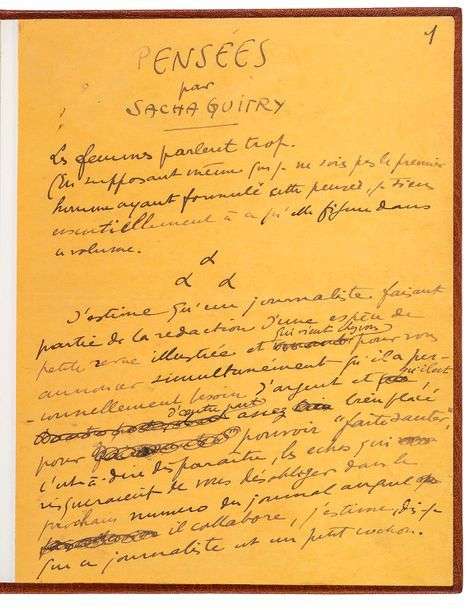 1
PENSÉES
par
SACHA GUITRY
Les femmes parlent trop.
En supposant même que je ne sois pas le premier
homme ayant formulé cette pensée, je tiens
essentiellement à ce qu'elle figure dans
ce volume.
J'estime qu'un journaliste faisant
partie de la rédaction d'une espèce de
petite revue illustrée et qui vient chez vous pour vous
annoncer simultanément qu'il a per-
sonnellement besoin d'argent et qu'il est
d'autre part assez bien placé
pour pouvoir "faire sauter",
c'est-à-dire disparaître, les échos qui
risqueraient de vous désobliger dans le
prochain numéro du journal auquel
il collabore, j'estime, dis-je
que ce journaliste est un petit cochon.